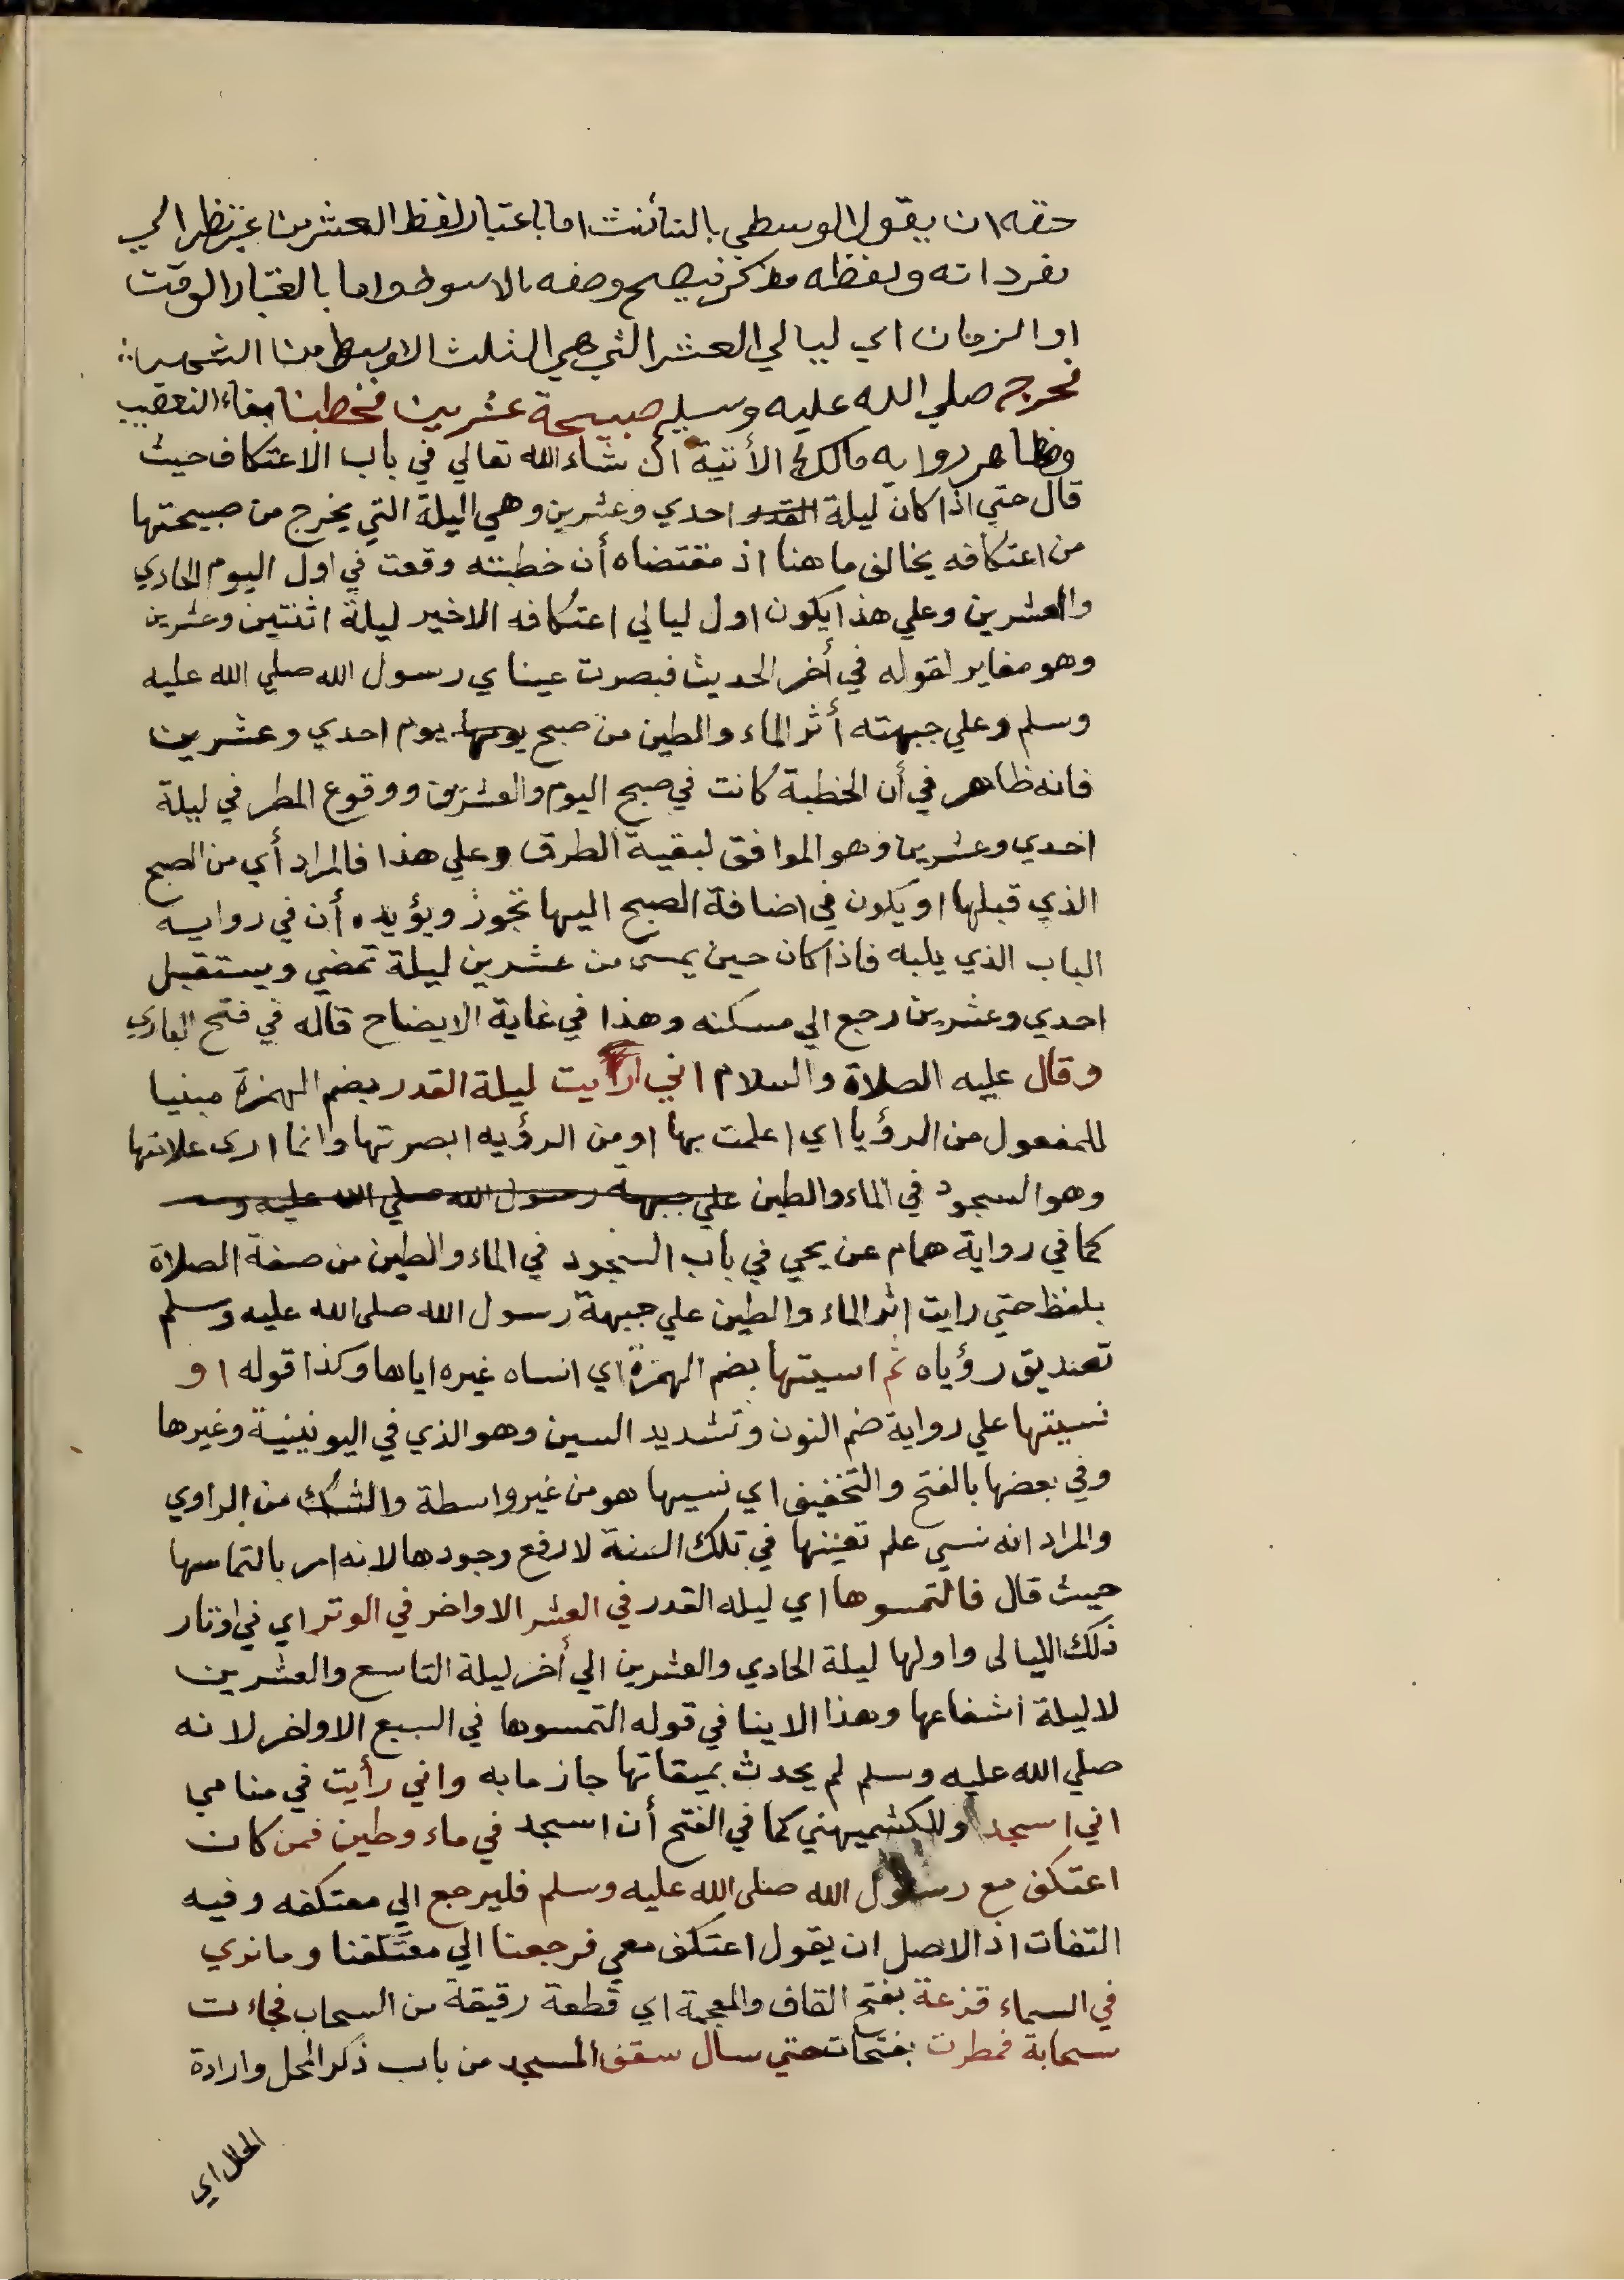 حقه ان يقول الوسطي بالتأنيث اما باعتبار لفظ العشر من غير نظر الي
مفرداته ولفظه مذكر فيصح وصفه بالاوسط واما باعتبار الوقت
او الزمان اي ليالي العشر التي هي الثلث الاوسط من الشهر
فخرج صلي الله عليه وسلم صبيحة عشرين فخطبنا بفاء التعقيب
وظاهر رواية مالك الأتية ان شاء الله تعالي في باب الاعتكاف حيث
قال حتي اذا كان ليلة القدر احدي وعشرين وهي اليلة التي يخرج من صبيحتها
من اعتكافه يخالف ما هنا اذ مقتضاه أن خطبته وقعت في اول اليوم الحادي
والعشرين وعلي هذا يكون اول ليالي اعتكافه الاخير ليلة اثنتين وعشرين
وهو مغاير لقوله في أخر الحديث فبصرت عيناي رسول الله صلي الله عليه
وسلم وعلي جبهته أثر الماء والطين من صبح يومها يوم احدي وعشرين
فانه ظاهر في أن الخطبة كانت في صبح اليوم والعشرين ووقوع المطر في ليلة
احدي وعشرين وهو الموافق لبقية الطرق وعلي هذا فالمراد أي من الصبح
الذي قبلها او يكون في اضافة الصبح اليها تجوز ويؤيده أن في رواية
الباب الذي يليه فاذا كان حين يمسى من عشرين ليلة تمضي ويستقبل
احدي وعشرين رجع الي مسكنه وهذا في غاية الايضاح قاله في فتح الباري
وقال عليه الصلاة والسلام اني اريت ليلة القدر بضم الهمزة مبنيا
للمفعول من الرؤيا اي اعلمت بها او من الرؤيه ابصرتها وانما ارى علامتها
وهو السجود في الماء والطين علي جبهة رسول الله صلي الله عليه وسـ
كما في رواية همام عن يحي في باب السجود في الماء والطين من صفة الصلاة
بلفظ حتي رايت اثر الماء والطين علي جبهة رسول الله صلى الله عليه وسلم
تصديق رؤياه ثم انسيتها بضم الهمزة اي انساه غيره اياها وكذا قوله او
نسيتها علي رواية ضم النون وتشديد السين وهو الذي في اليونينية وغيرها
وفي بعضها بالفتح والتخفيف اي نسيها هو من غير واسطة والشك من الراوي
والمراد انه نسي علم تعيينها في تلك السنة لا رفع وجودها لانه امر بالتماسها
حيث قال فالتمسوها اي ليله القدر في العشر الاواخر في الوتر اي في اوتار
ذلك الليالى واولها ليلة الحادي والعشرين الي أخر ليلة التاسع والعشرين
لا ليلة اشفاعها وهذا الا ينافي قوله التمسوها في السبع الاواخر لانه
صلي الله عليه وسلم لم يحدث بميقاتها جازما به واني رأيت في منامي
اني اسجد وللكشميهني كما في الفتح أن اسجد في ماء وطين فمن كان
اعتكف مع رسول الله صلى الله عليه وسلم فليرجع الي معتكفه وفيه
التفات اذ الاصل ان يقول اعتكف معي فرجعنا الي معتكفنا وما نري
في السماء قزعة بفتح القاف والمعجمة اي قطعة رقيقة من السحاب فجاءت
سحابة فمطرت بفتحات حتي سال سقف المسجد من باب ذكر المحل وارادة
الحال اي